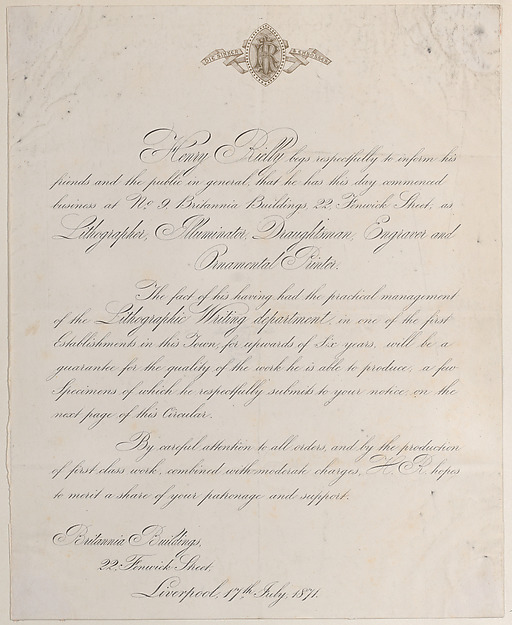 DIE SINKER & EMBOSSER
HR
Henry Rielly begs respectfully to inform his
friends and the public in general, that he has this day commenced
business at No 9, Britannia Buildings, 22, Fenwick Street, as
Lithographer, Illuminator, Draughtsman, Engraver and
Ornamental Printer.
The fact of his having had the practical management
of the Lithographic Writing department, in one of the first
Establishments in this Town, for upwards of Six years, will be a
guarantee for the quality of the work he is able to produce, a few
Specimens of which he respectfully submits to your notice, on the
next page of this Circular.
By careful attention to all orders, and by the production
of first class work, combined with moderate charges, H. R. hopes
to merit a share of your patronage and support.
Britannia Buildings,
22, Fenwick Street.
Liverpool, 17th July, 1871.